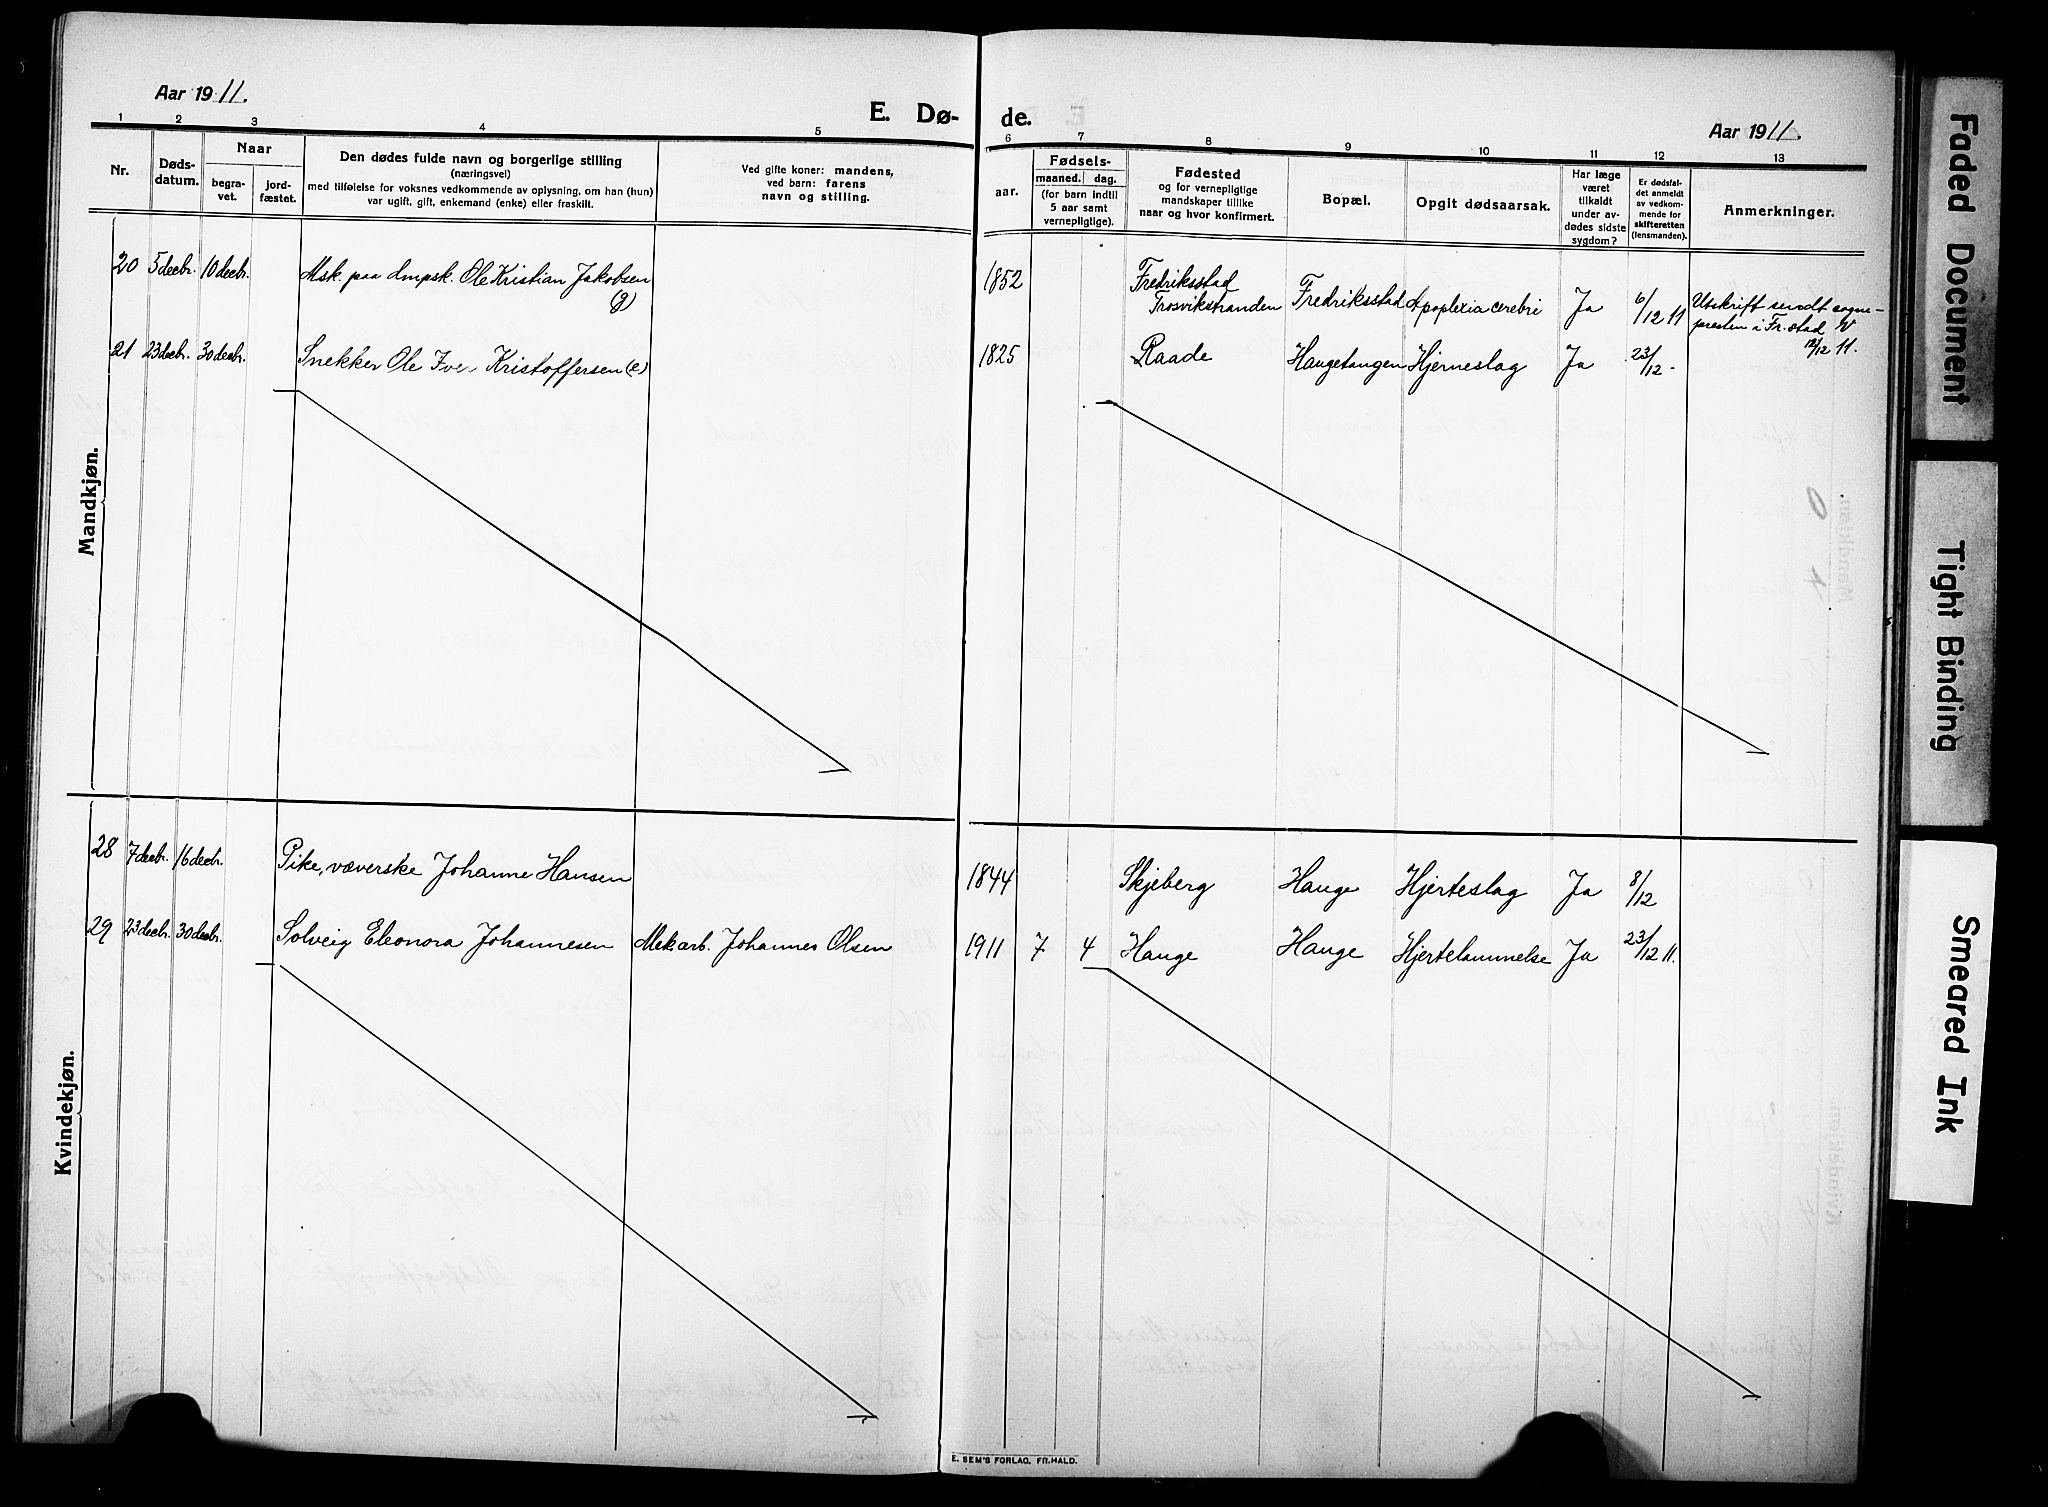 Aar 1911.
E. Dø-
de.
Aar 1911.
1 2 3 4 5 6 7 8 9 10 11 12 13
Nr.
Døds-
datum.
Naar
begra-
vet.
jord-
fæstet.
Den dødes fulde navn og borgerlige stilling
(næringsvei)
med tilføielse for voksnes vedkommende av oplysning, om han (hun)
var ugift, gift, enkemand (enke) eller fraskilt.
Ved gifte koner: mandens,
ved barn: farens
navn og stilling.
aar.
Fødsels-
maaned. dag.
(for barn indtil
5 aar samt
vernepligtige).
Fødested
og for vernepligtige
mandskaper tillike
naar og hvor konfirmert.
Bopæl.
Opgit dødsaarsak.
Har læge
været
tilkaldt
under av-
dødes sidste
sygdom?
Er dødsfal-
det anmeldt
av vedkom-
mende for
skifteretten
(lensmanden).
Anmerkninger.
Mandkjøn.
20 5 decbr. 10 decbr. Msk. paa dmpsk. Ole Kristian Jakobsen
(g)
1852 Fredriksstad
Trosvikstranden
Fredriksstad Apoplexia cerebri Ja 6/12 11 Utskrift sendt sogne-
presten i Fr.stad
12/12 11.
21 23 decbr. 30 decbr. Snekker Ole Iver Kristoffersen (e) 1825 Raade Haugetangen Hjerneslag Ja 23/12 -
Kvindekjøn.
28 7 decbr. 16 decbr. Pike, væverske Johanne Hansen 1844 Skjeberg Hauge Hjerteslag Ja 8/12
29 23 decbr. 30 decbr. Solveig Eleonora Johannesen Mek.arb. Johannes Olsen 1911 7 4 Hauge Hauge Hjertelammelse Ja 23/12 11.
E. SEM'S FORLAG, FR.HALD.
Faded Document
Tight Binding
Smeared Ink